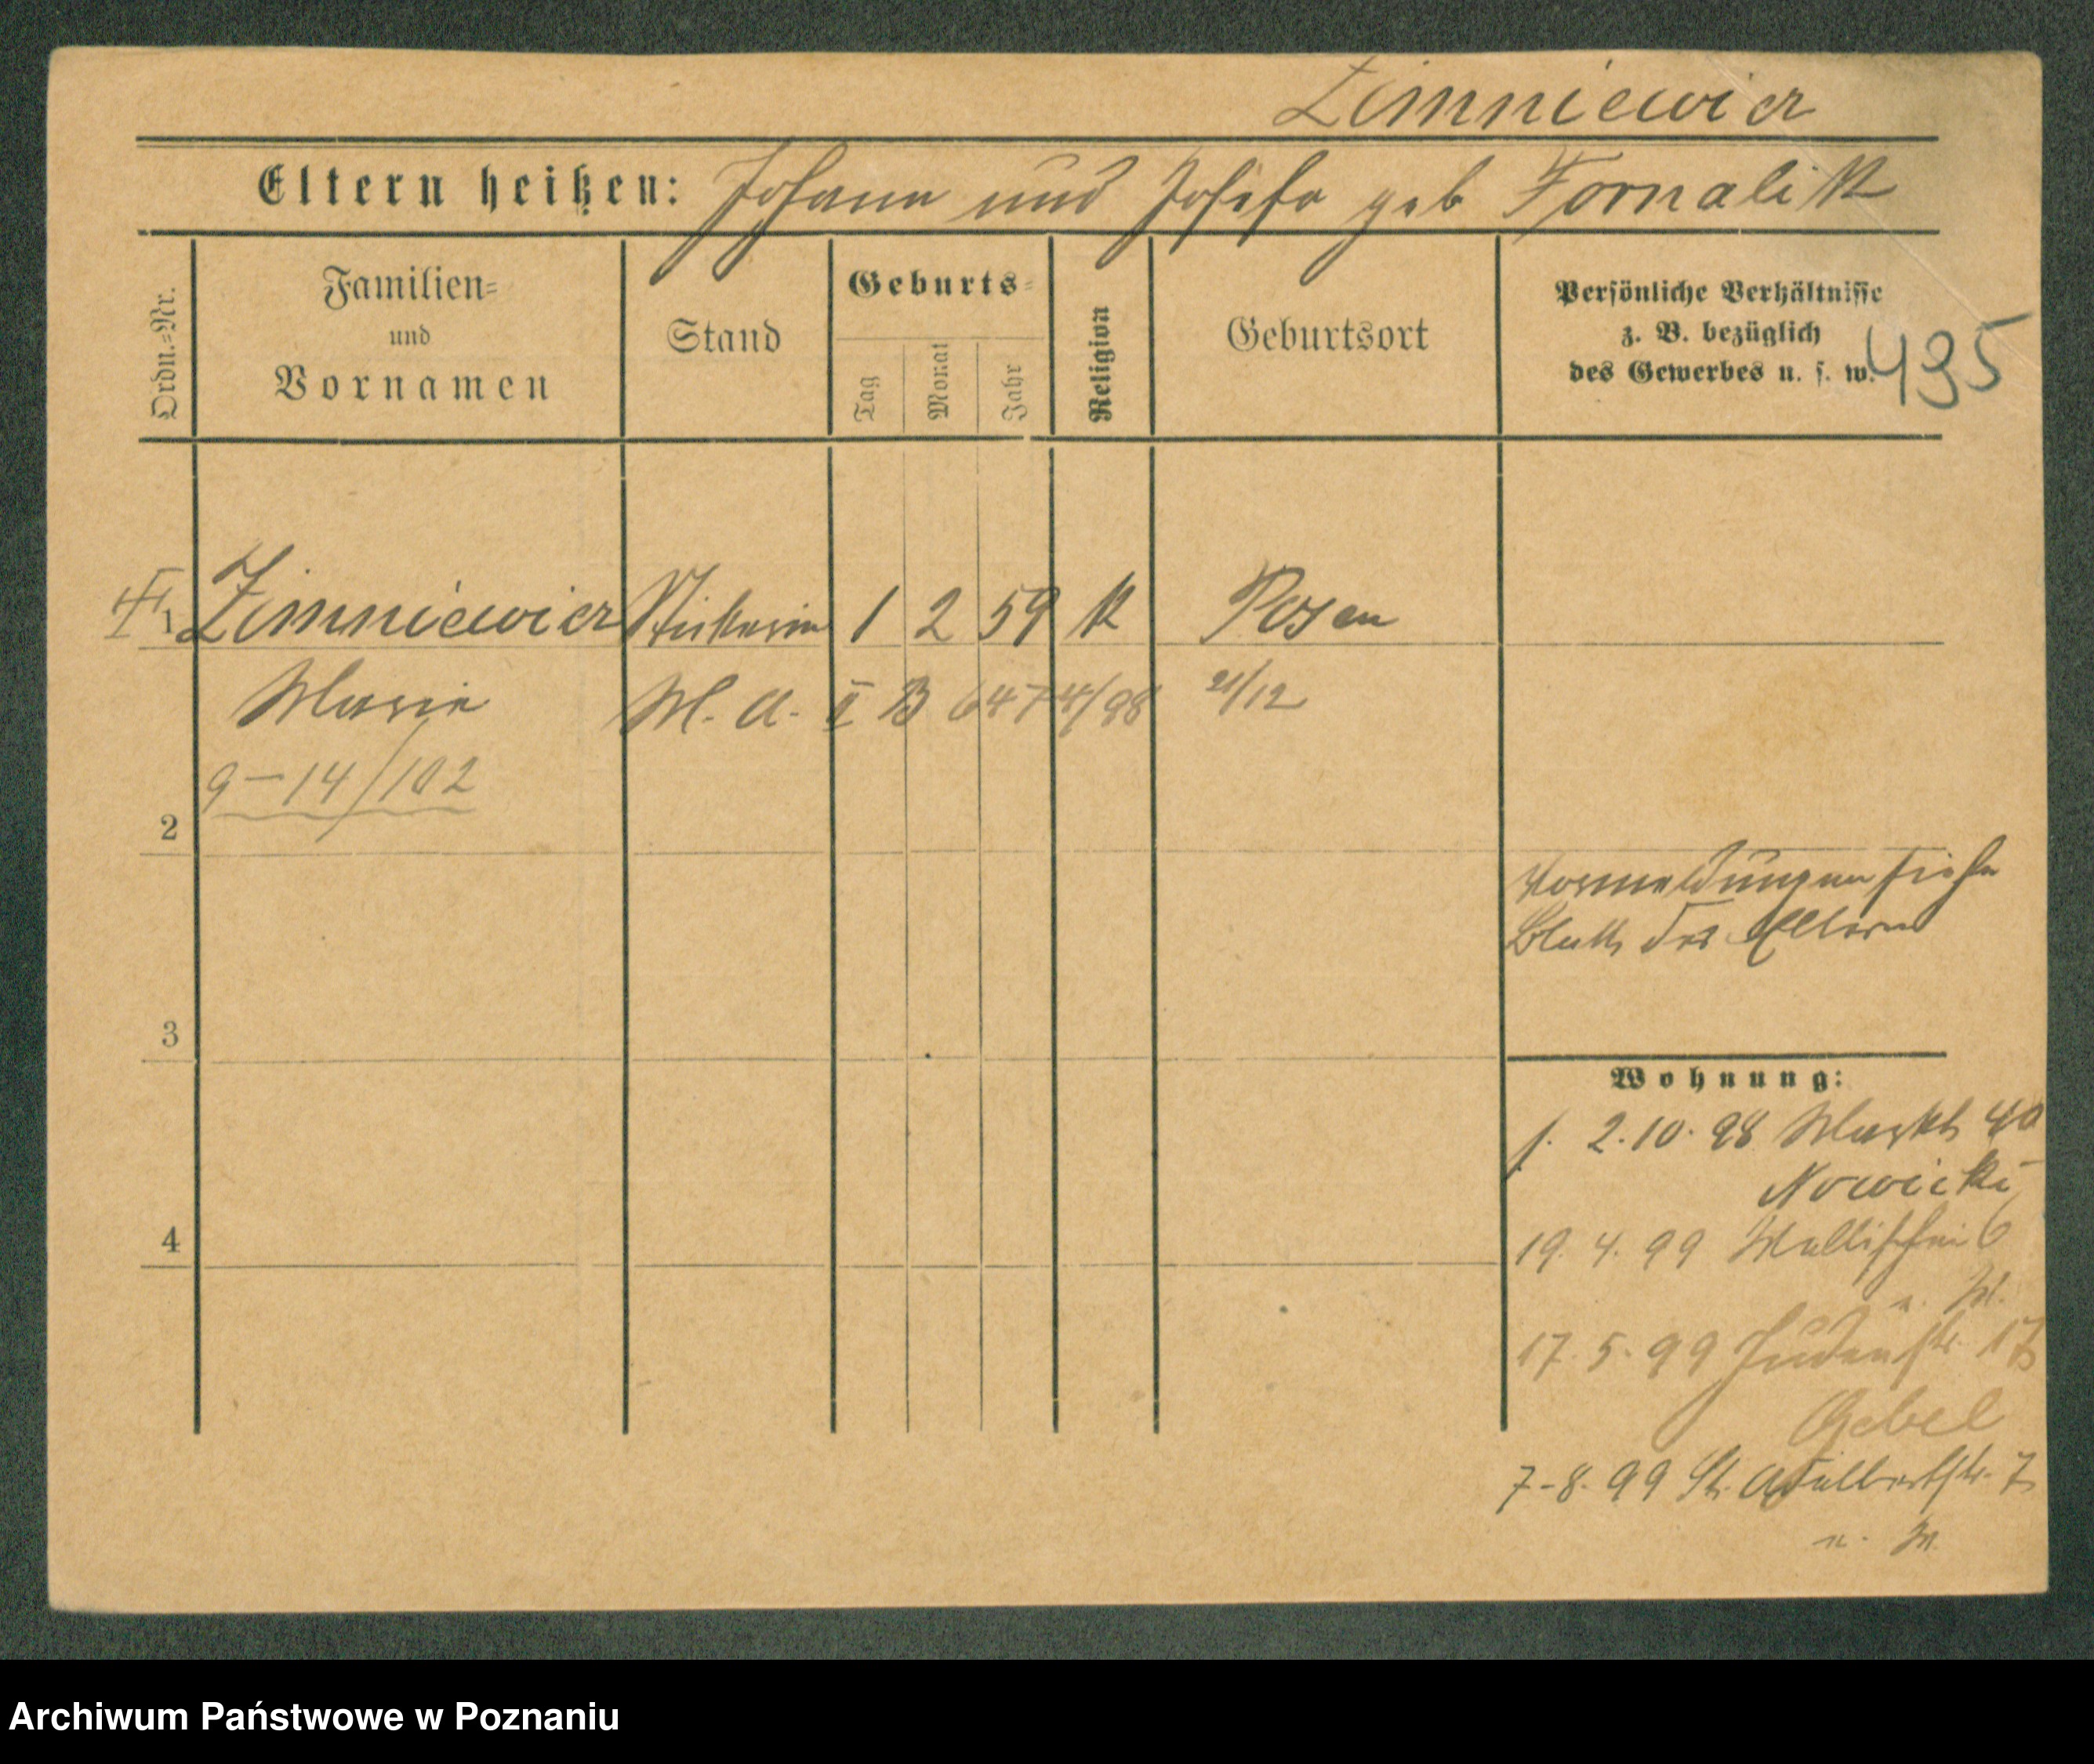 Zimniewicz
Eltern heißen: Johann und Josefa geb Fornalik
Ordn.=Nr.
Familien=
und
Vornamen
Stand
Geburts=
Tag
Monat
Jahr
Religion
Geburtsort
Persönliche Verhältnisse
z. B. bezüglich
des Gewerbes u. s. w.
495
1 Zimniewicz 1 2 59 K Posen
Marie M. A. II B 6474/98 21/12
9-14/102
2
Vormeldungen siehe
Blatt der Eltern
3
Wohnung:
1. 2.10.98 Markt 40
Nowicki
4
19. 4. 99 Wallischei 6
17. 5. 99 Judenstr.
Gebel
7-8. 99 St. Adalbertstr. 7
Archiwum Państwowe w Poznaniu